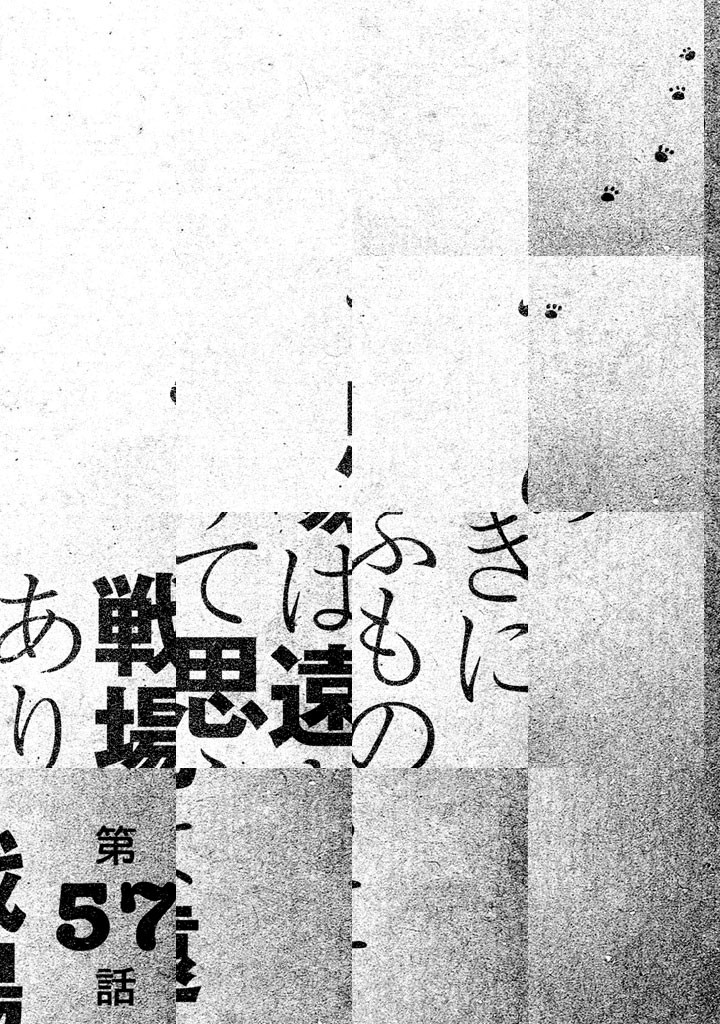 きに
ふもの
は遠
て思
戦場
あり
第57話